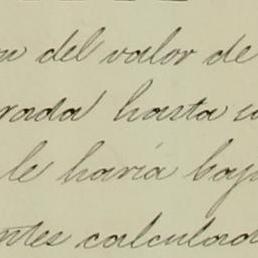 del valor de
rada hasta
le haria baj
ntes calculad